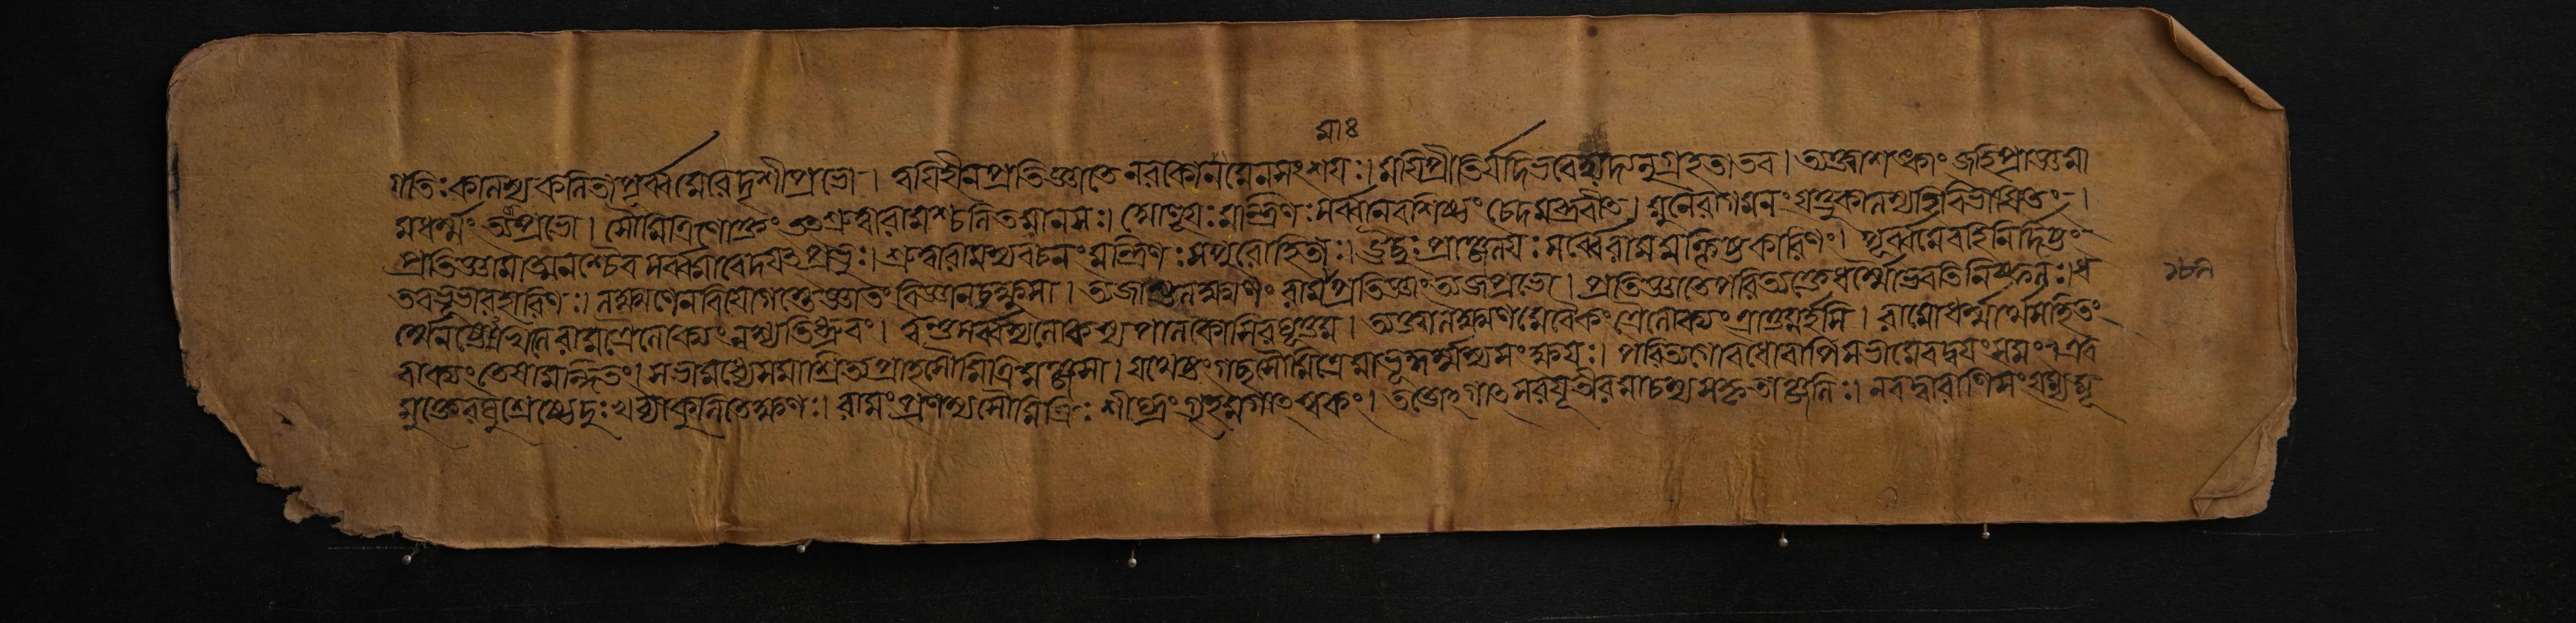 মাঃ
গতিঃ কালস্য কলিতা পূর্ব্বমেবেদৃশী প্রভো। ত্বয়ি হীনপ্রতিজ্ঞাতে নরকো নমে ন সংশয়ঃ। ময়ি প্রীতির্যদি ভবেদ্যদ্যনুগ্রহতা তব। ত্যক্ত্বা শঙ্কাং জহি প্রাজ্ঞ মা
মধর্ম্মং ত্যজ প্রভো। সৌমিত্রিণোক্তং তচ্ছ্রুত্বা রামশ্চলিতমানসঃ। আহূয় মন্ত্রিণঃ সর্ব্বান বশিষ্ঠং চেদমব্রবীৎ। মুনেরাগমনং যত্তু কালস্যাপি বিভাষিতং।
প্রতিজ্ঞামাত্মনশ্চৈব সর্ব্বমাবেদয়ৎ প্রভুঃ। শ্রুত্বা রামস্য বচনং মন্ত্রিণঃ সপুরোহিতাঃ। ঊচুঃ প্রাঞ্জলয়ঃ সর্ব্বে রামমক্লিষ্টকারিণং। পূর্ব্বমেব হি নির্দিষ্টং
তব ভূভারহারিণঃ। লক্ষ্মণেন বিয়োগস্তে জ্ঞাতং বিজ্ঞানচক্ষুষা। ত্যজাশু লক্ষ্মণং রাম মা প্রতিজ্ঞাং ত্যজ প্রভো। প্রতিজ্ঞাতে পরিত্যক্তে ধর্ম্মো ভবতি নিষ্ফলঃ। ধ
র্ম্মে নষ্টেঽখিলে রাম ত্রৈলোক্যং নশ্যতি ধ্রুবং। ত্বন্তু সর্ব্বস্য লোকস্য পালকোসি রঘূত্তম। ত্যক্ত্বা লক্ষ্মণমেবৈকং ত্রৈলোক্যং ত্রাতুমর্হসি। রামো ধর্ম্মার্থসহিতং
বাক্যং তেষামনিন্দিতং। সভামধ্যে সমাশ্রিত্য প্রাহ সৌমিত্রিমঞ্জসা। যথেষ্টং গচ্ছ সৌমিত্রে মাভূদ্ধর্ম্মস্য সংক্ষয়ঃ। পরিত্যাগো বধো বাপি সতামেব দ্বয়ং সমং। এব
মুক্তে রঘুশ্রেষ্ঠে দুঃখব্যাকুলিতেক্ষণঃ। রামং প্রণম্য সৌমিত্রিঃ শীঘ্রং গৃহমগাৎ স্বকং। ততোঽগাৎ সরযূতীরমাচম্য স কৃতাঞ্জলিঃ। নবদ্বারাণি সংযম্য মূ